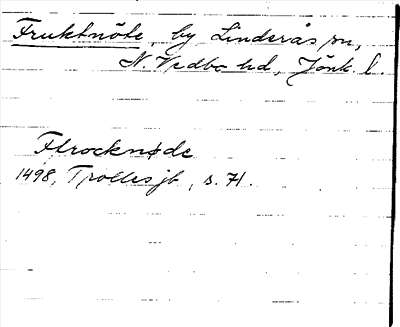 Fruktnöte, by Linderås sn,
N. Vedbo hd, Jönk. l.
Flrocknøde
1498, Trolles jb, s. 71.